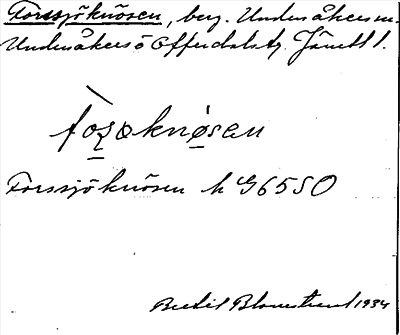 Forssjöknösen, berg. Undersåkers sn.
Undersåkers o Offerdals tg. Jämtl l.
fo̱ṣøkno̱sen
Forssjöknösen k G65SO
Bertil Blomstrand 1934